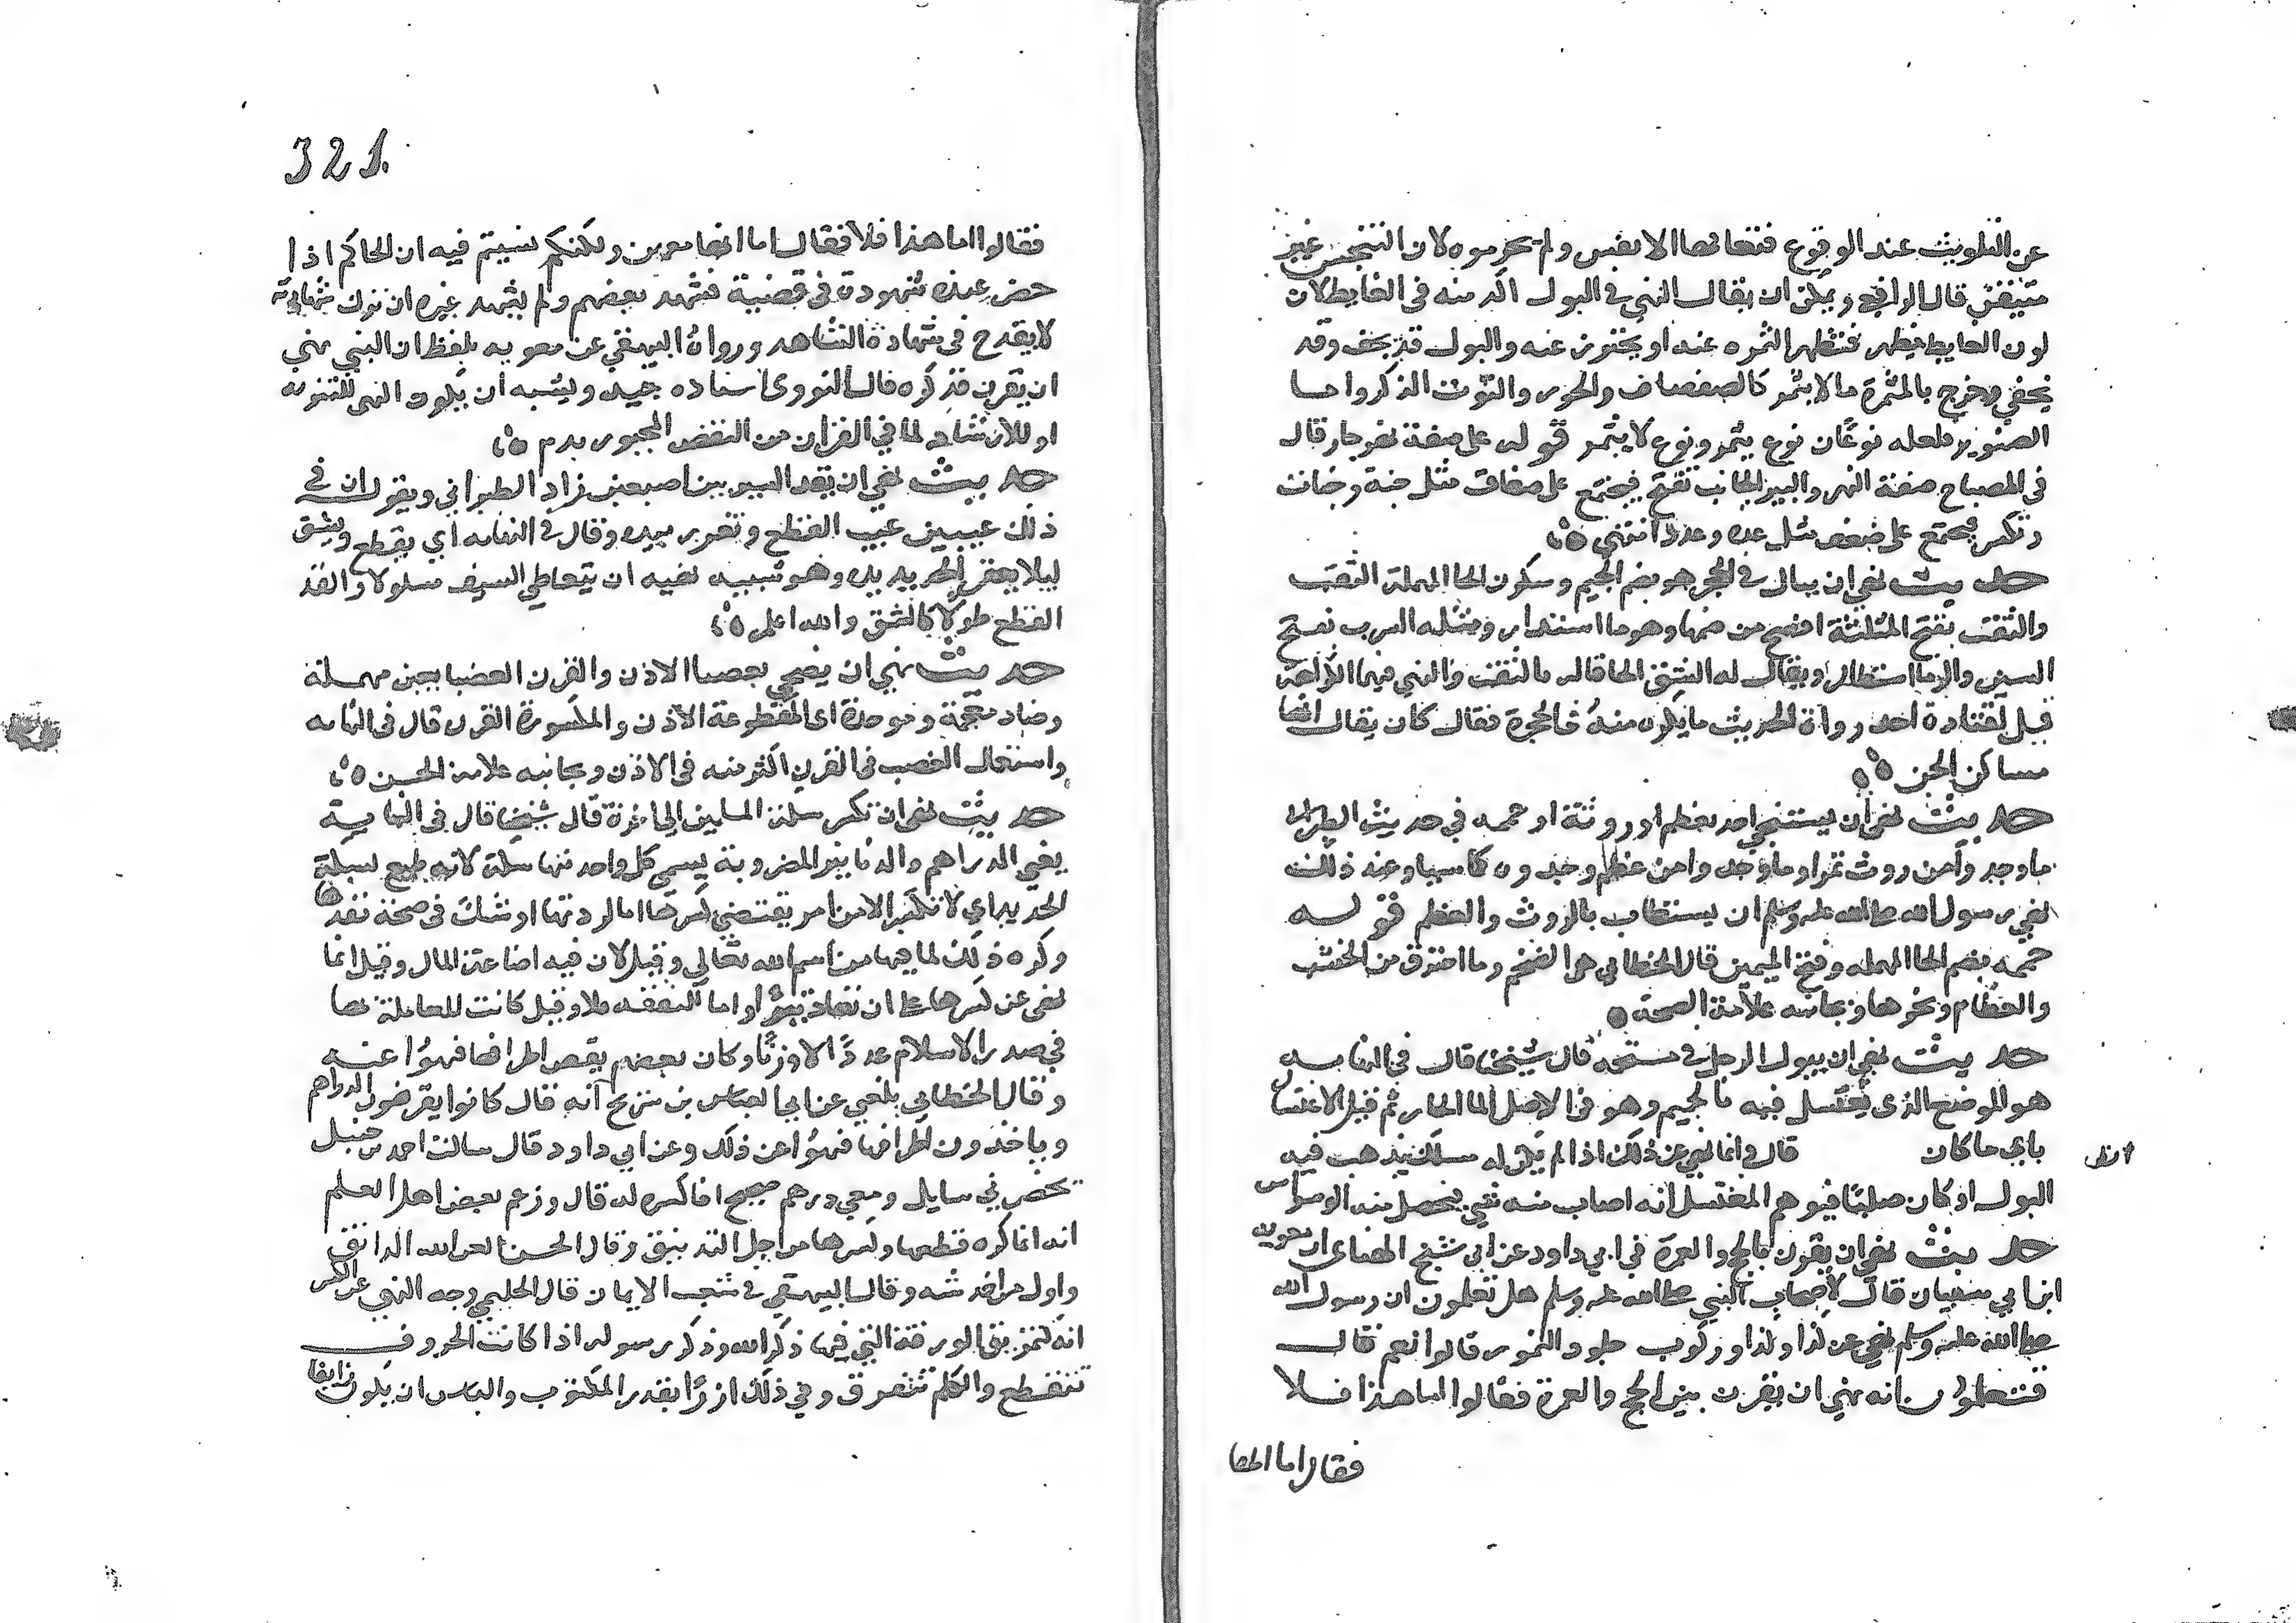 عن التلويث عند الوقوع فتعافها الانفس ولم يحرموه لان التنجس غير
متيقن قال الرافعي ويمكن ان يقال النهي في البول اكد منه في الغايط لان
لون الغايط يظهر فتطهر الثمره عنه او يحترز عنه والبول قد يجف وقد
يخفي وخرج بالمثمرة ما لا يثمر كالصفصاف والحور والتوت الذكر واما
الصنوبر فلعله نوعان نوع يثمر ونوع لا يثمر قوله على صفة نهر جار قال
في المصباح صفة النهر والبير الجانب تفتح فيجتمع على صفات مثل جنة وجنات
وتكسر فيجتمع على ضفف مثل عده وعدد انتهي
حديث نهي ان يبال في الجحر هو بضم الجيم وسكون الحا المهملة الثقب
والثقب بفتح المثلثة افصح من ضمها وهو ما استدار ومثله السرب بفتح
السين والرا ما استطال ويقال له الشق الحاقا له بالثقب والنهي فيهما للكراهة
قيل لقتادة احد رواة الحديث ما يكره منه في الجحرة فقال كان يقال انها
مساكن الجن
حديث نهي ان يستنجي احد بعظم او روثة او حممه في حديث الطبراني
ما وجد وا من روث تمرا وما وجد وا من عظم وجدوه كاسيا وعند ذلك
نهي رسول الله صلى الله عليه وسلم ان يستطاب بالروث والعظم قوله
حممه بضم الحا المهمله وفتح الميمين قال الخطابي هو الفحم وما احترق من الخشب
والعظام ونحوها وبجانبه علامة الصحة
حديث نهي ان يبول الرجل في مستحمه قال شيخنا قال في النهايه
هو الموضع الذي يغتسل فيه بالحميم وهو في الاصل الما الحار ثم قيل الاغتسال
باي ما كان قال وانما نهي عن ذلك اذا لم يكن له مسلك يذهب فيه
انظر
البول او كان صلبا فيوهم المغتسل انه اصاب منه شي فيحصل منه الوسواس
حديث نهي ان يقرن بالحج والعمرة في ابي داود عن ابي شيخ الهنائي ان معوية
ابن ابي سفيان قال لاصحاب النبي صلى الله عليه وسلم هل تعلمون ان رسول الله
صلى الله عليه وسلم نهي عن كذا وكذا وركوب جلود النمور قالوا نعم قال
فتعلمون انه نهي ان يقرن بين الحج والعمرة فقالوا اما هذا فلا
فقال اما انها
321
فقالوا اما هذا فلا فقال اما انها معهن ولكنكم نسيتم فيه ان الحاكم اذا
حضر عنده شهود في قضية فشهد بعضهم ولم يشهد غيره ان ترك شهادته
لا يقدح في شهادة الشاهد ورواه البيهقي عن معويه بلفظ ان النبي نهي
ان يقرن فذكره قال النووي اسناده جيد ويشبه ان يكون النهي للتنزيه
او للارشاد لما في القران من النقص المجبور بدم
حديث نهي ان يقد السير بين اصبعين زاد الطبراني ويقول ان في
ذلك عيبين عيب القطع وتغرير بيده وقال في النهايه اي يقطع ويشق
ليلا يعقر الحديد يده وهو شبيه نهيه ان يتعاطي السيف مسلولا والقد
القطع طولا كالشق والله اعلم
حديث نهي ان يضحي بعضبا الاذن والقرن العضبا بعين مهملة
وضاد معجمة وموحدة اي المقطوعة الاذن والمكسورة القرن قال في النهايه
واستعمال العضب في القرن اكثر منه في الاذن وبجانبه علامة الحسن
حديث نهي ان تكسر سكة المسلمين الجائزة قال شيخنا قال في النهاية
يعني الدراهم والدنانير المضروبة يسمي كل واحد منها سكة لانه طبع بسكة
الحديد اي لا تكسر الا من امر يقتضي كسرها اما لرداتها او شك في صحة نقدها
وكره ذلك لما فيها من اسم الله تعالي وقيل لان فيه اضاعة المال وقيل انما
نهي عن كسرها على ان تعاد تبرا واما للنفقه فلا وقيل كانت للمعاملة بها
في صدر الاسلام عددا لا وزنا وكان بعضهم يقص اطرافها فنهوا عنه
وقال الخطابي بلغني عن ابي العباس بن سريج انه قال كانوا يقرضون الدراهم
وياخذون اطرافها فنهوا عن ذلك وعن ابي داود قال سالت احمد بن حنبل
يحضرني سايل ومعي درهم صحيح افاكسره له قال وزعم بعض اهل العلم
انه انما كره قطعها وكسرها من اجل التدنيق وقال الحسن لعن الله الدانق
واول من احدثه وقال البيهقي في شعب الايمان قال الحليمي وجه النهي عن الكسر
انه كتمزيق الورقة التي فيها ذكر الله وذكر رسوله اذا كانت الحروف
تنقطع والكلم تتفرق وفي ذلك ازرا بقدر المكتوب والباس ان يكون زايفا